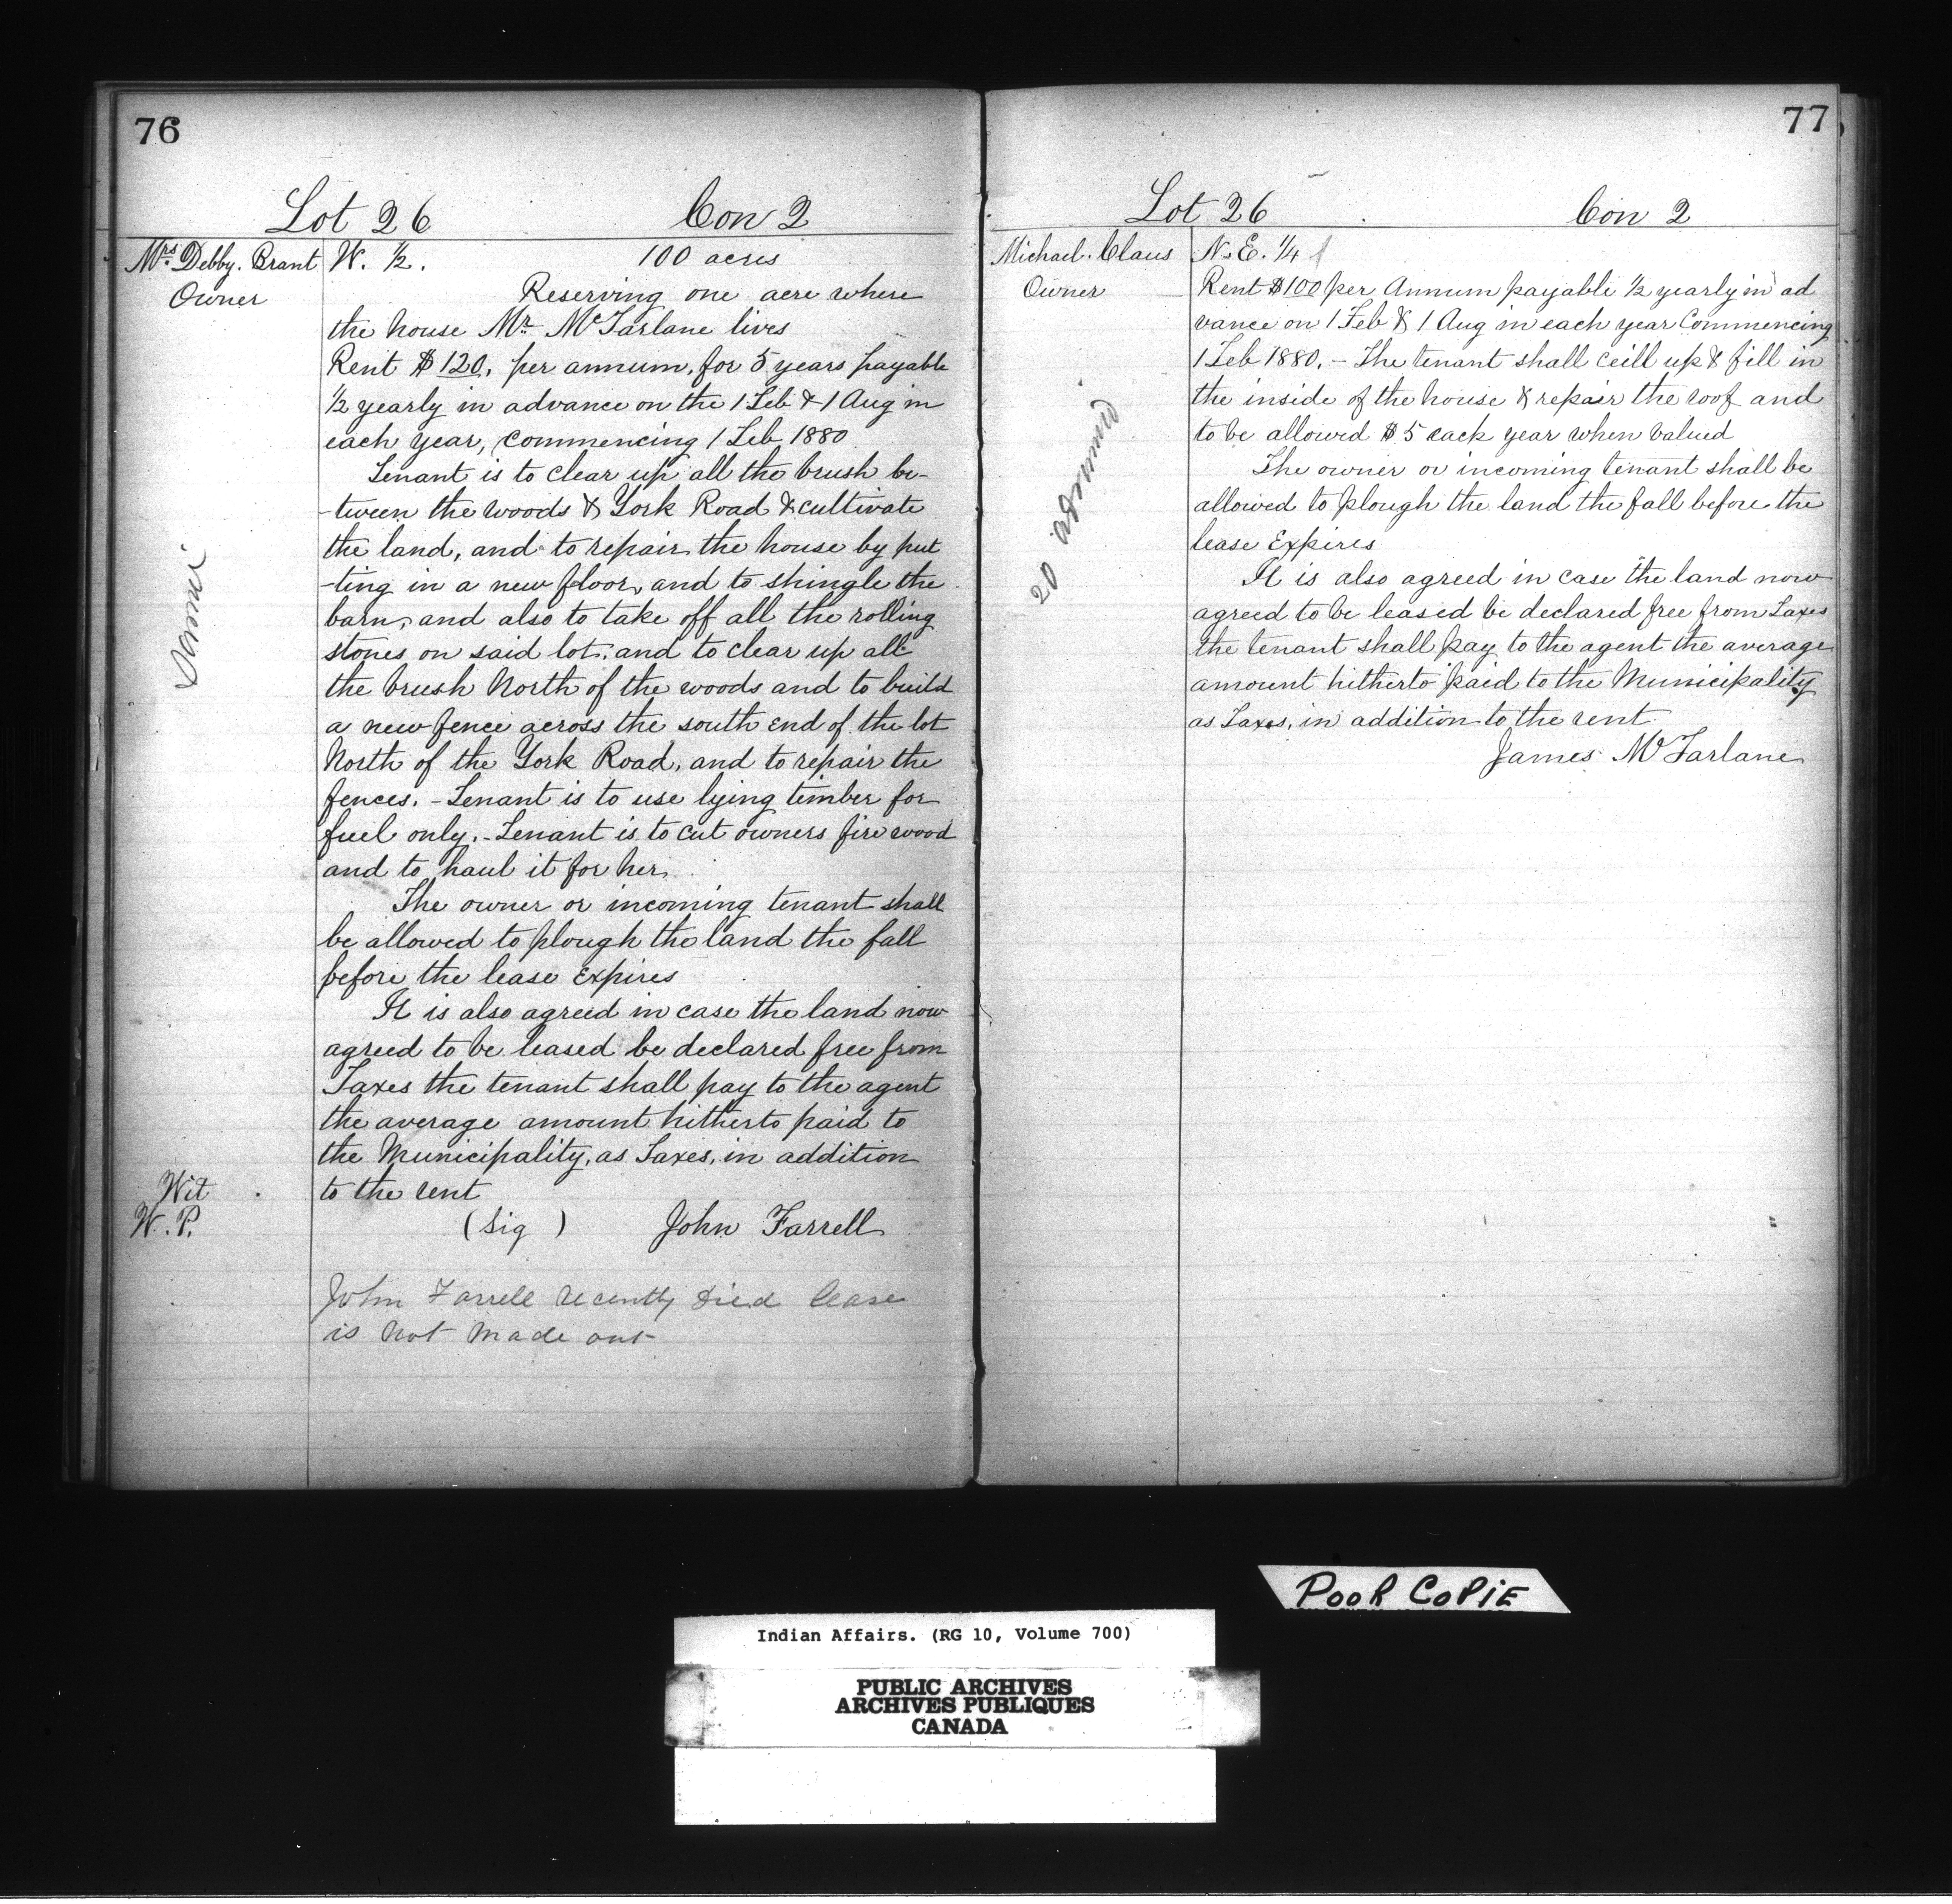 76
Lot 26 Con 2
Mrs Debby. Brant W. ½. 100 acres
Owner Reserving one acre where
the house Mr. McFarlane lives
Rent $120. per annum, for 5 years payable
½ yearly in advance on the 1 Feb & 1 Aug in
each year, Commencing 1 Feb 1880
Tenant is to clear up all the brush be-
-tween the woods & York Road & cultivate
the land, and to repair the house by put
-ting in a new floor, and to shingle the
barn, and also to take off all the rolling
stones on said lot, and to clear up all
the brush North of the woods and to build
a new fence across the south end of the lot
North of the York Road, and to repair the
fences. - Tenant is to use lying timber for
fuel only. - Tenant is to cut owners fire wood
and to haul it for her.
The owner or incoming tenant shall
be allowed to plough the land the fall
before the lease Expires
It is also agreed in case the land now
agreed to be leased be declared free from
Taxes the tenant shall pay to the agent
the average amount hitherto paid to
the Municipality, as Taxes, in addition
Wit to the rent
W. P. (Sig) John Farrell
John Farrell recently died lease
is not made out
77
Lot 26 Con 2
Michael. Claus N. E. ¼
Owner Rent $100 per Annum payable ½ yearly in ad
vance on 1 Feb & 1 Aug in each year Commencing
1 Feb 1880. - The tenant shall ceill up & fill in
the inside of the house & repair the roof and
to be allowed $5 each year when valued
The owner or incoming tenant shall be
allowed to plough the land the fall before the
lease Expires
It is also agreed in case the land now
agreed to be leased be declared free from Taxes
the tenant shall pay to the agent the average
amount hitherto paid to the Municipality
as Taxes, in addition to the rent
James McFarlane
POOR COPIE
Indian Affairs. (RG 10, Volume 700)
PUBLIC ARCHIVES
ARCHIVES PUBLIQUES
CANADA